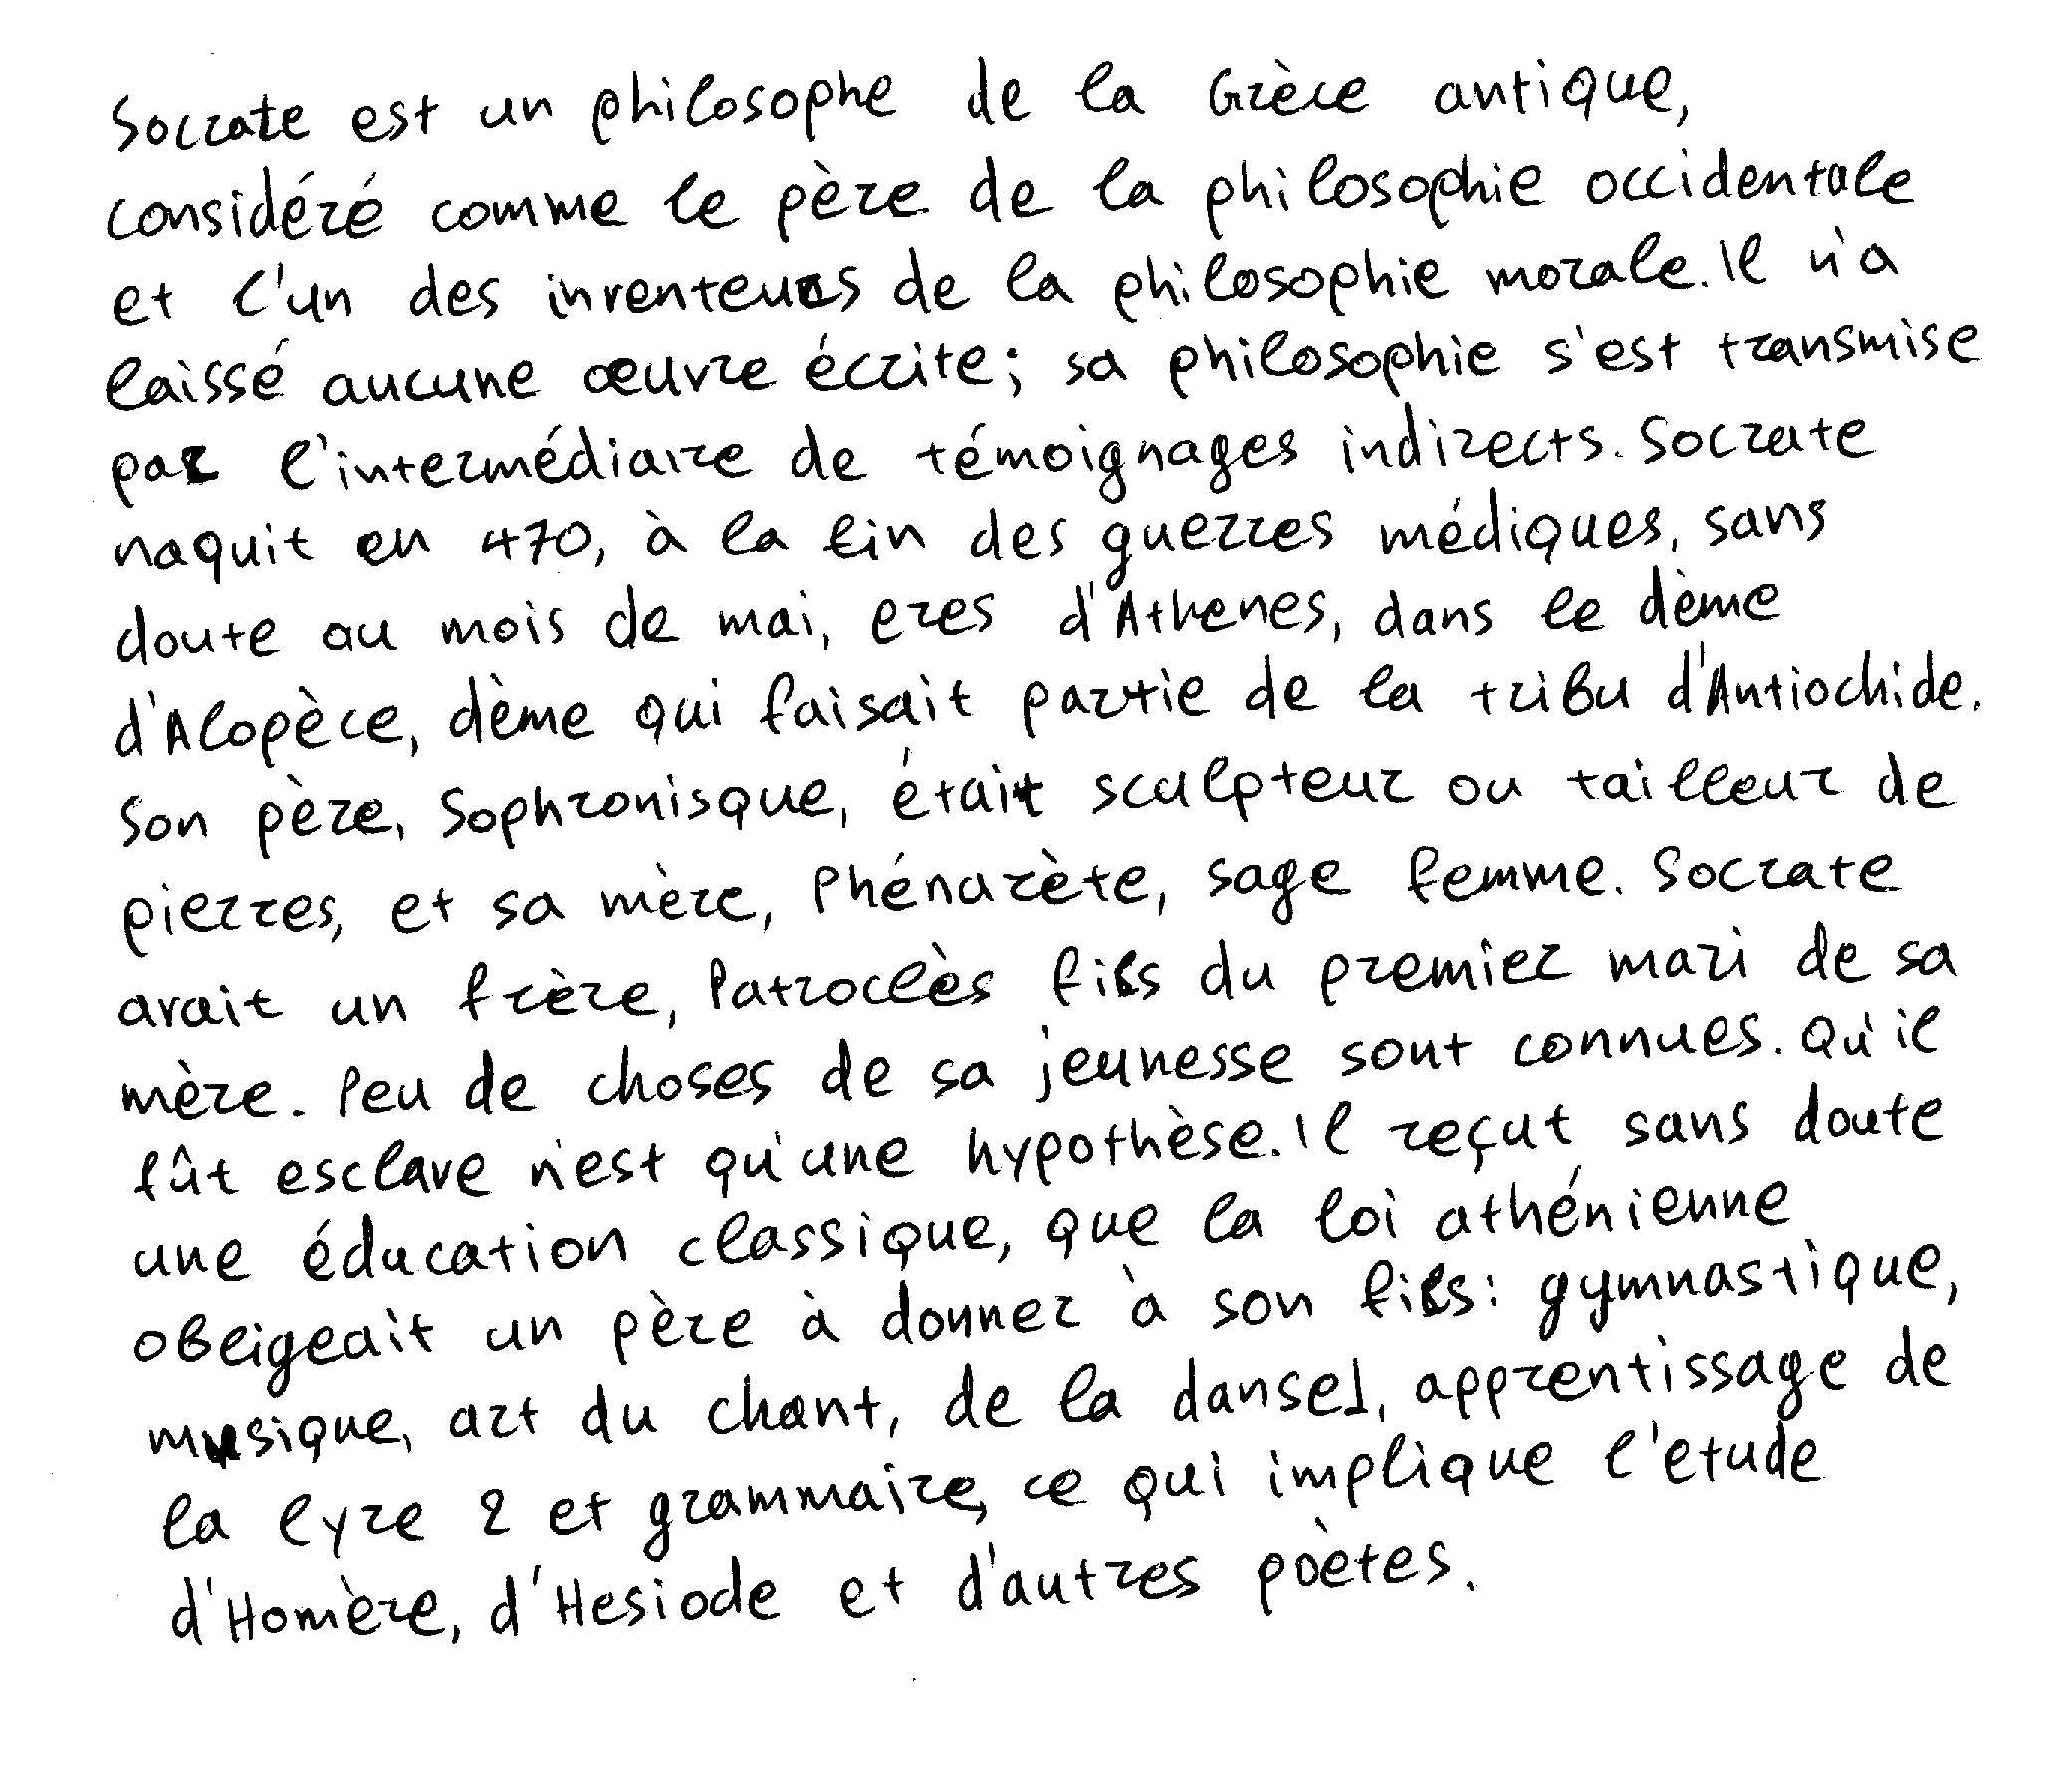 Socrate est un philosophe de la Grèce antique,
considéré comme le père de la philosophie occidentale
et l'un des inventeurs de la philosophie morale. Il n'a
laissé aucune œuvre écrite; sa philosophie s'est transmise
par l'intermédiaire de témoignages indirects. Socrate
naquit en 470, à la fin des guerres médiques, sans
doute au mois de mai, pres d'Athenes, dans le dème
d'Alopèce, dème qui faisait partie de la tribu d'Antiochide.
Son père, Sophronisque, était sculpteur ou tailleur de
pierres, et sa mère, Phénarète, sage femme. Socrate
avait un frère, Patroclès fils du premier mari de sa
mère. Peu de choses de sa jeunesse sont connues. Qu'il
fût esclave n'est qu'une hypothèse. Il reçut sans doute
une éducation classique, que la loi athénienne
obligeait un père à donner à son fils: gymnastique,
musique, art du chant, de la danse1, apprentissage de
la lyre 2 et grammaire, ce qui implique l'etude
d'Homère, d'Hesiode et d'autres poètes.